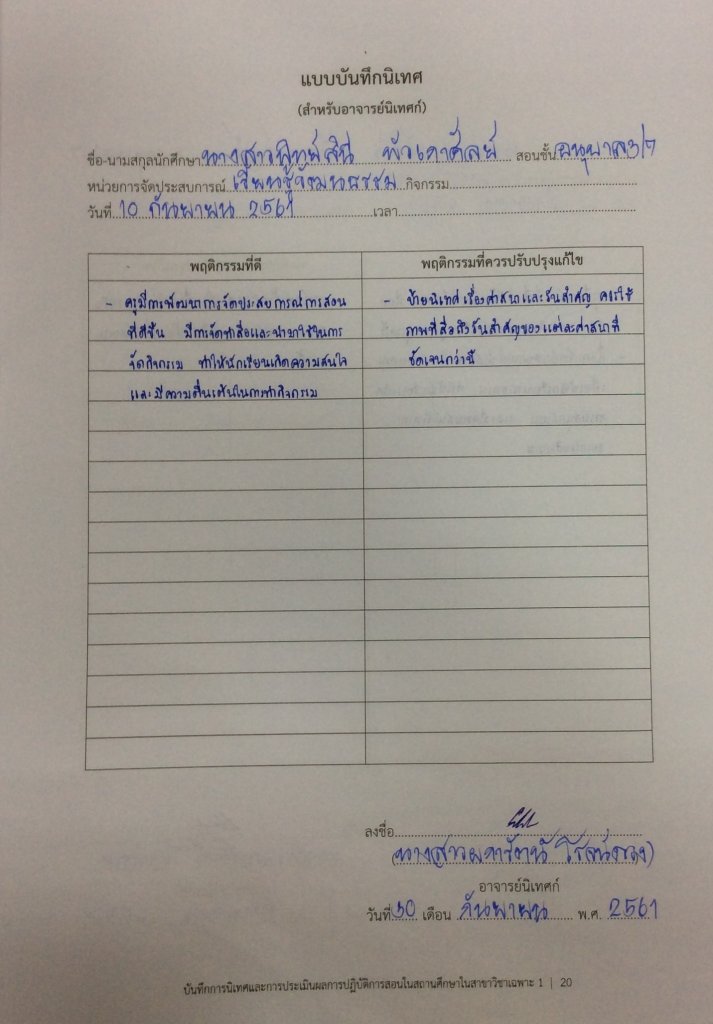 แบบบันทึกนิเทศ
(สำหรับอาจารย์นิเทศก์)
ชื่อ-นามสกุลนักศึกษา นางสาว สอนชั้น อนุบาล
หน่วยการจัดประสบการณ์ เรียนรู้ กิจกรรม
วันที่ 10 กันยายน 2561 เวลา
พฤติกรรมที่ดี พฤติกรรมที่ควรปรับปรุงแก้ไข
- ครูมีการพัฒนาการจัดประสบการณ์การสอน - ป้ายนิเทศ เรื่องศาสนาและวันสำคัญ ควรใช้
ที่ดีขึ้น มีการจัดทำสื่อและนำมาใช้ในการ ภาพที่สื่อถึงวันสำคัญของแต่ละศาสนาที่
จัดกิจกรรม ทำให้นักเรียนเกิดความสนใจ ชัดเจนกว่านี้
และมีความตื่นเต้นในการทำกิจกรรม
ลงชื่อ
(นางสาว)
อาจารย์นิเทศก์
วันที่ เดือน กันยายน พ.ศ. 2561
บันทึกการนิเทศและการประเมินผลการปฏิบัติการสอนในสถานศึกษาในสาขาวิชาเฉพาะ 1 | 20